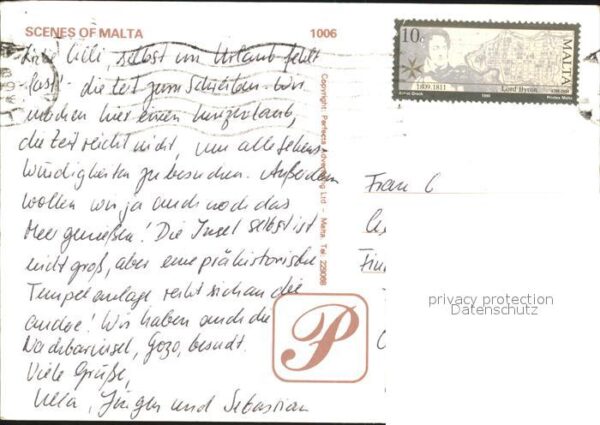 SCENES OF MALTA 1006
Liebe Lilli, selbst im Urlaub fehlt
fast die Zeit zum Schreiben. Wir
machen hier einen Kurzurlaub,
die Zeit reicht nicht, um alle Sehens-
würdigkeiten zu besuchen. Außerdem
wollen wir ja auch noch das
Meer genießen! Die Insel selbst ist
nicht groß, aber eine prähistorische
Tempelanlage reiht sich an die
andere! Wir haben auch die
Nachbarinsel, Gozo, besucht.
Viele Grüße,
Ulla, Jürgen und Sebastian
Copyright Perfecta Advertising Ltd – Malta Tel.
P
10c
MALTA
1809·1811
Lord Byron
Frau C
privacy protection
Datenschutz